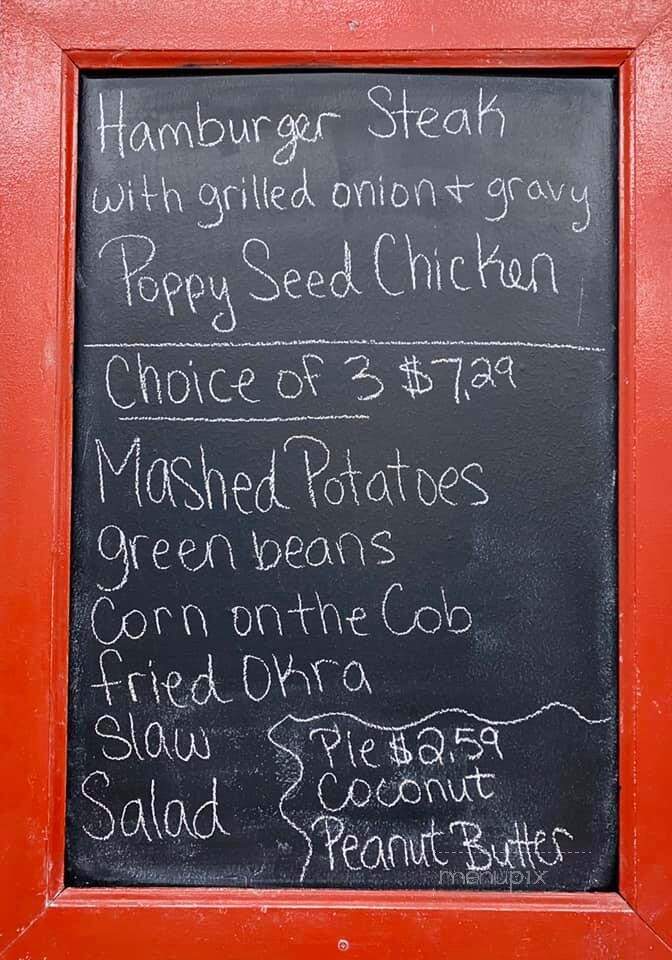 Hamburger Steak
with grilled onion + gravy
Poppy Seed Chicken
Choice of 3 $7.29
Mashed Potatoes
green beans
Corn on the Cob
fried Okra
Slaw
Salad
Pie $2.59
Coconut
Peanut Butter
menupix